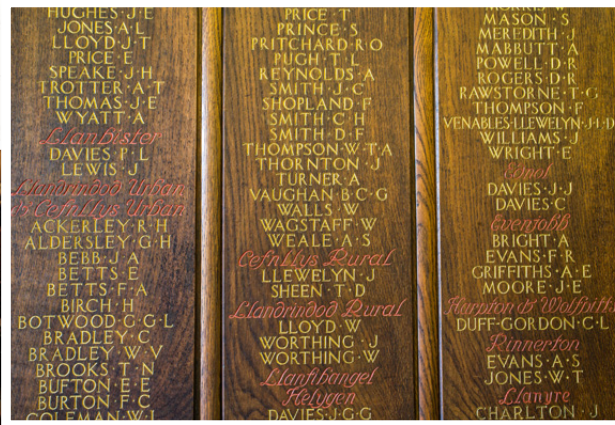 HUGHES·J·E
JONES·A·L
LLOYD·J·T
PRICE·E
SPEAKE·J·H
TROTTER·A·T
THOMAS·J·E
WYATT·A
Llanbister
DAVIES·P·L
LEWIS·J
Llandrindod Urban
& Cefnllys Urban
ACKERLEY·R·H
ALDERSLEY·G·H
BEBB·J·A
BETTS·E
BETTS·F·A
BIRCH·H
BOTWOOD·G·G·L
BRADLEY·C
BRADLEY·W·V
BROOKS·T·N
BUFTON·E·E
BURTON·F·C
COLEMAN·W·L
PRICE·T
PRINCE·S
PRITCHARD·R·O
PUGH·T·L
REYNOLDS·A
SMITH·J·C
SHOPLAND·F
SMITH·C·H
SMITH·D·F
THOMPSON·W·T·A
THORNTON·J
TURNER·A
VAUGHAN·B·C·G
WALLS·W
WAGSTAFF·W
WEALE·A·S
Cefnllys Rural
LLEWELYN·J
SHEEN·T·D
Llandrindod Rural
LLOYD·W
WORTHING·J
WORTHING·W
Llanfihangel
Helygen
DAVIES·J·G·G
MORRIS·W
MASON·S
MEREDITH·J
MABBUTT·A
POWELL·D·R
ROGERS·D·R
RAWSTORNE·T·G
THOMPSON·F
VENABLES-LLEWELYN·J·L·D
WILLIAMS·J
WRIGHT·E
Ednol
DAVIES·J·J
DAVIES·C
Evenjobb
BRIGHT·A
EVANS·F·R
GRIFFITHS·A·E
MOORE·J·E
Harpton &
DUFF-GORDON·C·L
Kinnerton
EVANS·A·S
JONES·W·T
Llanyre
CHARLTON·J